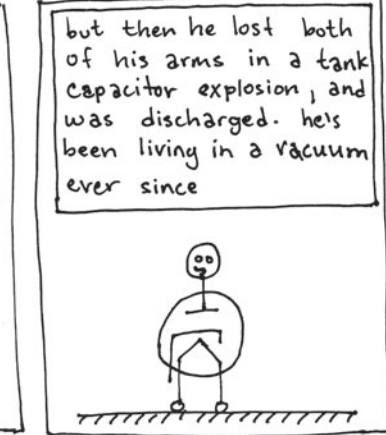 but then he lost both
of his arms in a tank
capacitor explosion, and
was discharged. he's
been living in a vacuum
ever since